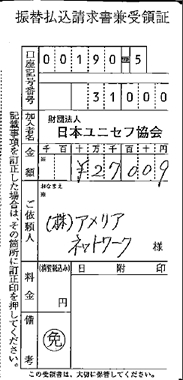 振替払込請求書兼受領証
口座記号番号
00190=5
31000
加入者名
財団法人
日本ユニセフ協会
金額
千百十万千百十円
¥27009
ご依頼人
おなまえ
(株)アメリア
ネットワーク
様
料金
(消費税込み)
円
日附印
備考
免
記載事項を訂正した場合は、その箇所に訂正印を押してください。
この受領書は、大切に保管してください。